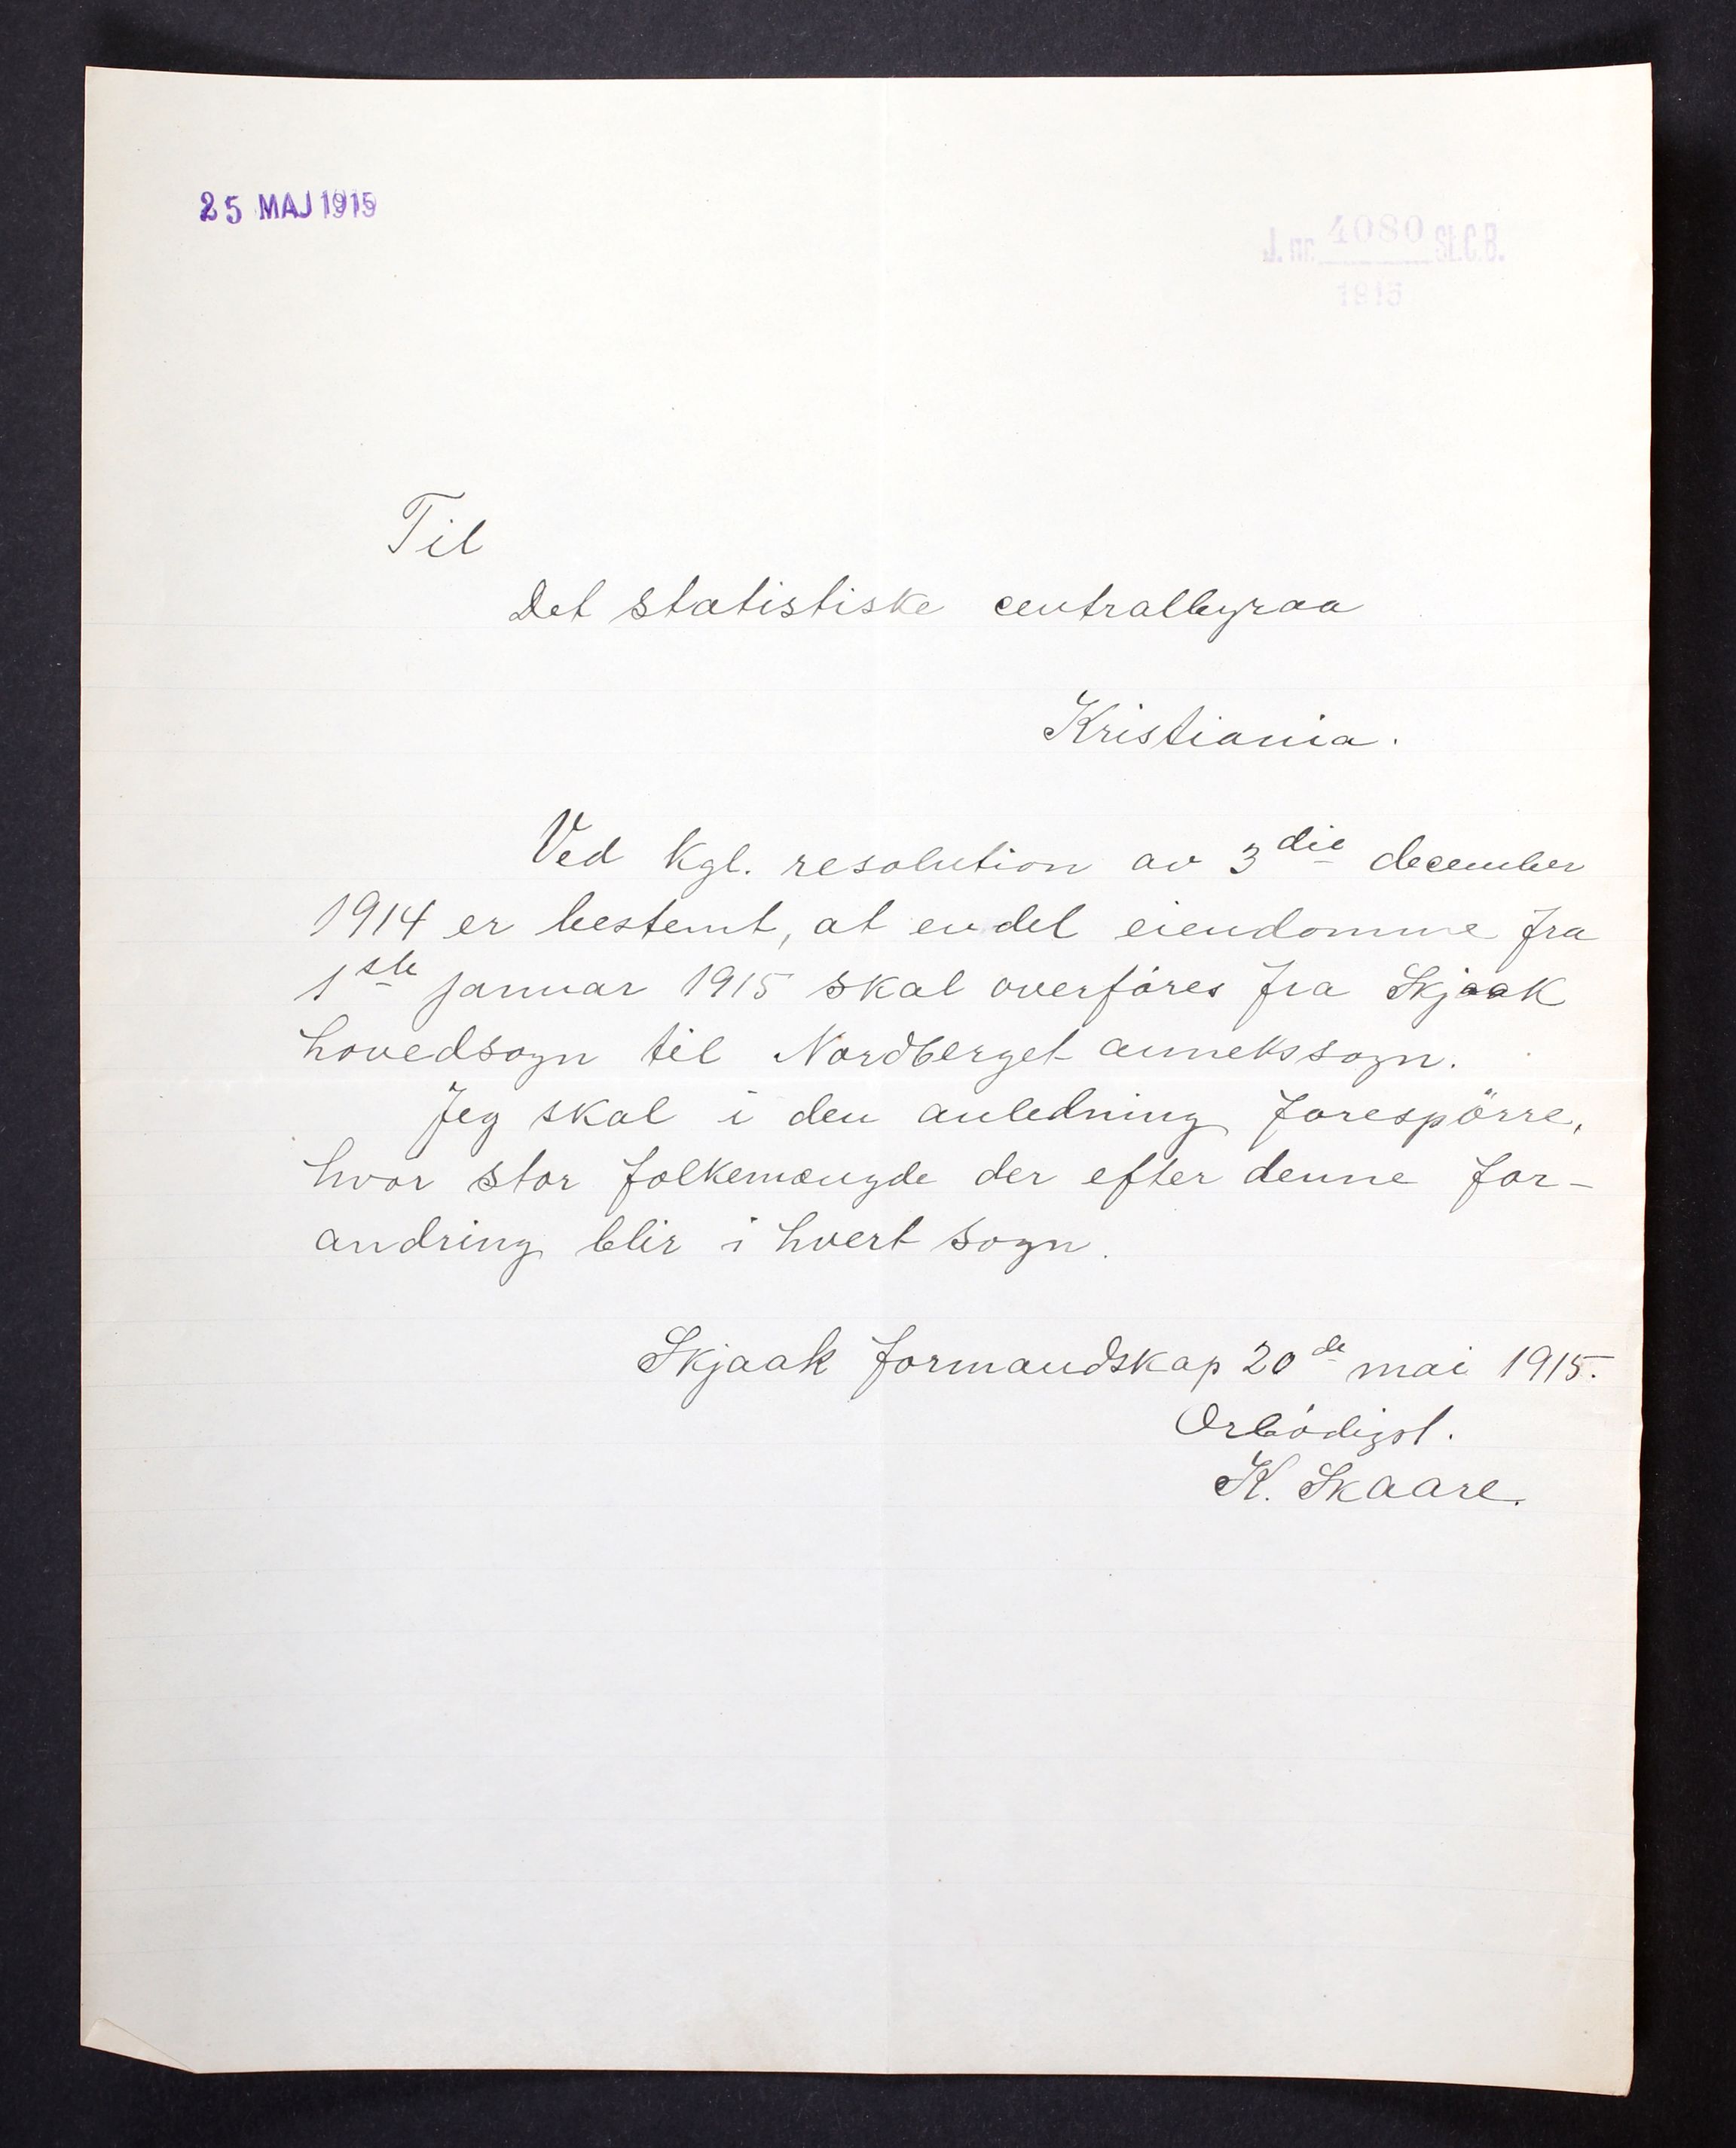 25 MAJ 1915
J. nr. 4080 St.C.B.
1915
Til
Det statistiske centralbyraa
Kristiania.
Ved kgl. resolution av 3die december
1914 er bestemt, at endel eiendomme fra
1ste januar 1915 skal overføres fra Skjaak
hovedsogn til Nordberget annekssogn.
Jeg skal i den anledning forespörre,
hvor stor folkemængde der efter denne for-
andring blir i hvert sogn.
Skjaak formandskap 20de mai 1915.
Ørbödigst.
K. Skaare.